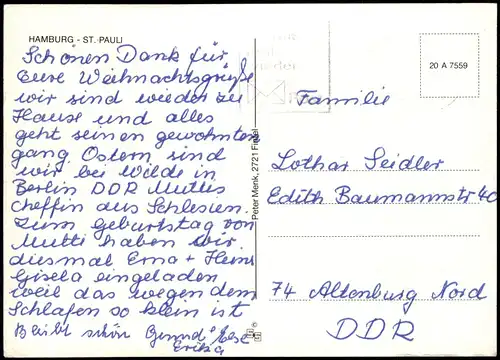 HAMBURG - ST. PAULI
Schönen Dank für
Eure Weihnachtsgrüße
wir sind wieder zu
Hause und alles
geht seinen gewohnten
gang. Ostern, sind
wir bei Wilde in
Berlin DDR Muttis
cheffin aus Schlesien.
Zum Geburtstag von
Mutti haben wir
diesmal Erna + Heini
Gisela eingeladen
weil das wegen dem
Schlafen so klein ist
Bleibt schön Gesund
Erika
Peter Menk, 2721 Fintel
20 A 7559
Familie
Lothar Seidler
Edith Baumannstr 40
74 Altenburg Nord
DDR